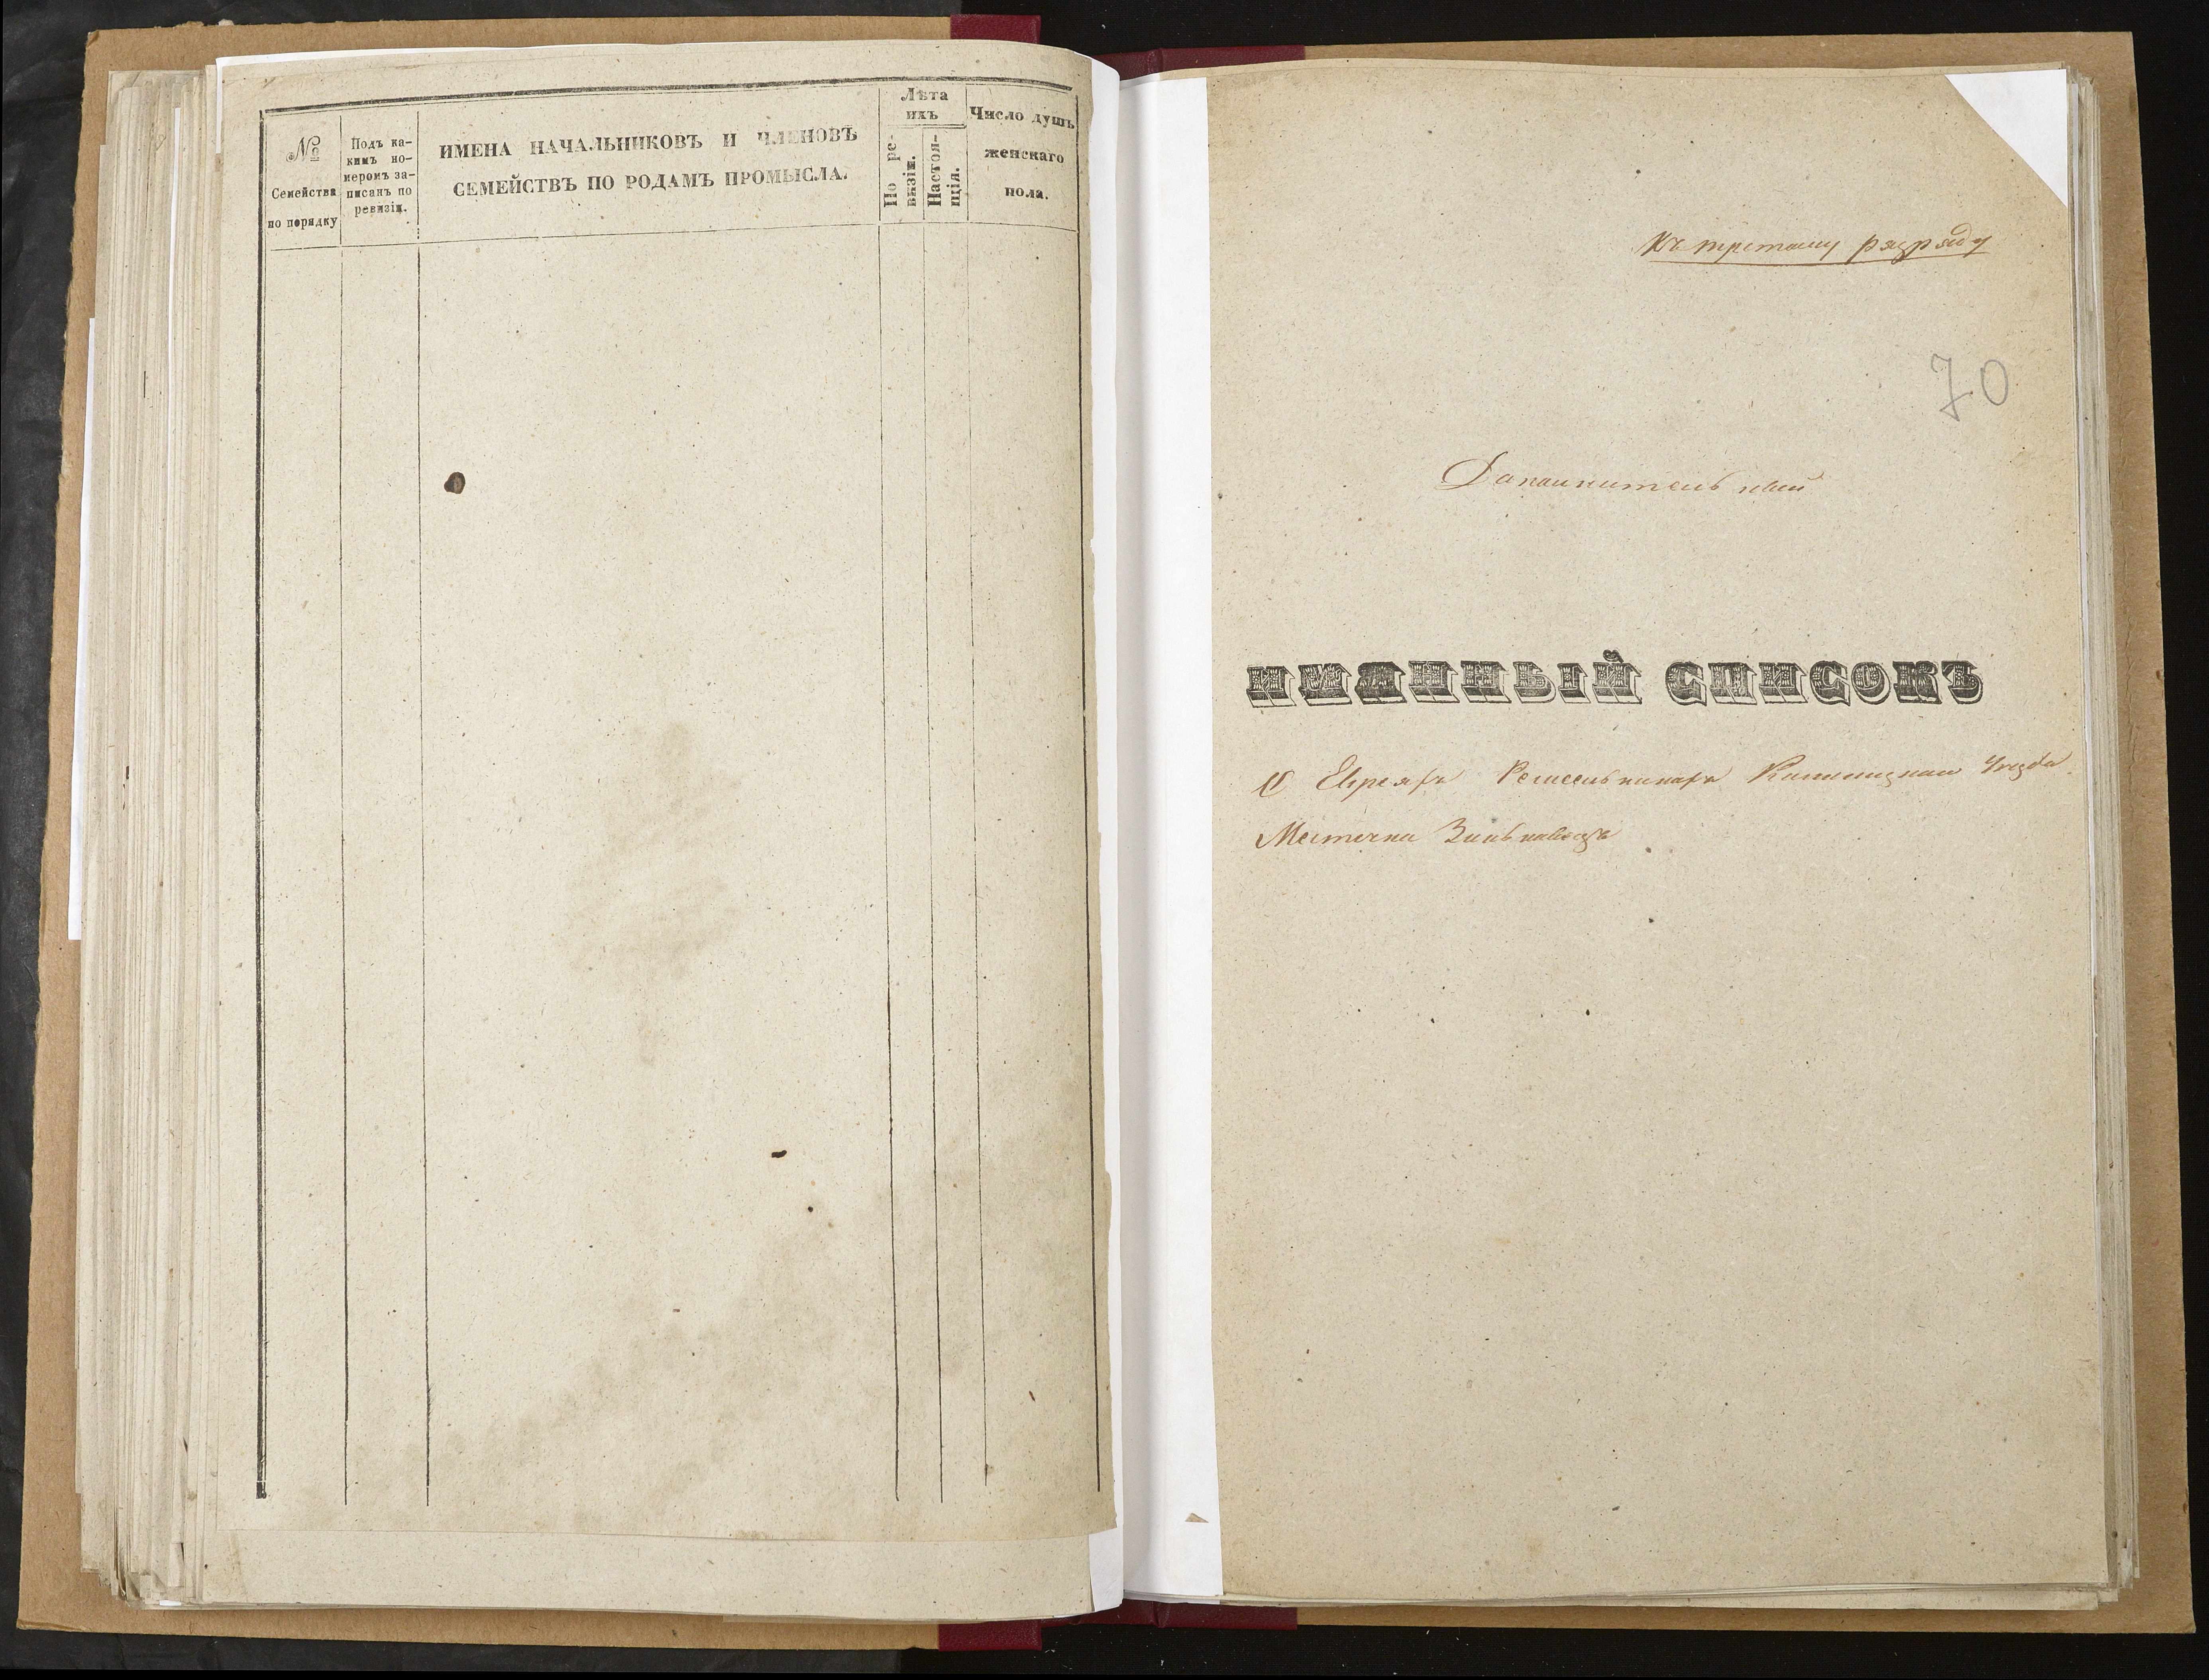 №
Семейства
по порядку
Подъ ка-
кимъ но-
меромъ за-
писанъ по
ревизіи.
ИМЕНА НАЧАЛЬНИКОВЪ И ЧЛЕНОВЪ
СЕМЕЙСТВЪ ПО РОДАМЪ ПРОМЫСЛА.
Лѣта
ихъ
По ре-
визіи.
Настоя-
щія.
Число душъ
женскаго
пола.
Къ третому разряду
70
Дополнительный
ИМЯННЫЙ СПИСОКЪ
О Евреяхъ Ремесленикахъ Уезда
Местечка Зиньковецъ